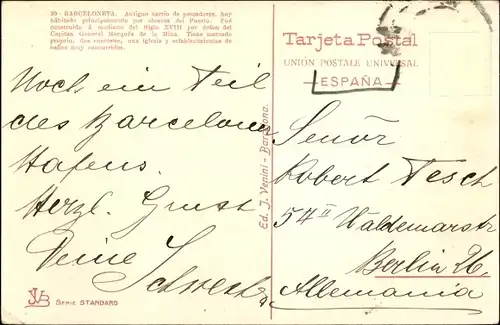 39 - BARCELONETA. Antiguo barrio de pescadores, hoy
habitado principalmente por obreros del Puerto. Fué
construído á mediados del Siglo XVIII por orden del
Capitán General Marqués de la Mina. Tiene mercado
propio, dos cuarteles, una iglesia y establecimientos de
baños muy concurridos.
Noch ein Teil
des Barceloner
Hafens.
Herzl. Gruss
Deine Schwester
JVB
SERIE STANDARD
Ed. J. Venini - Barcelona.
Tarjeta Postal
UNIÓN POSTALE UNIVERSAL
ESPAÑA
Señor
Robert Tesch
54 II Waldemarstr
Berlin 26,
Allemania